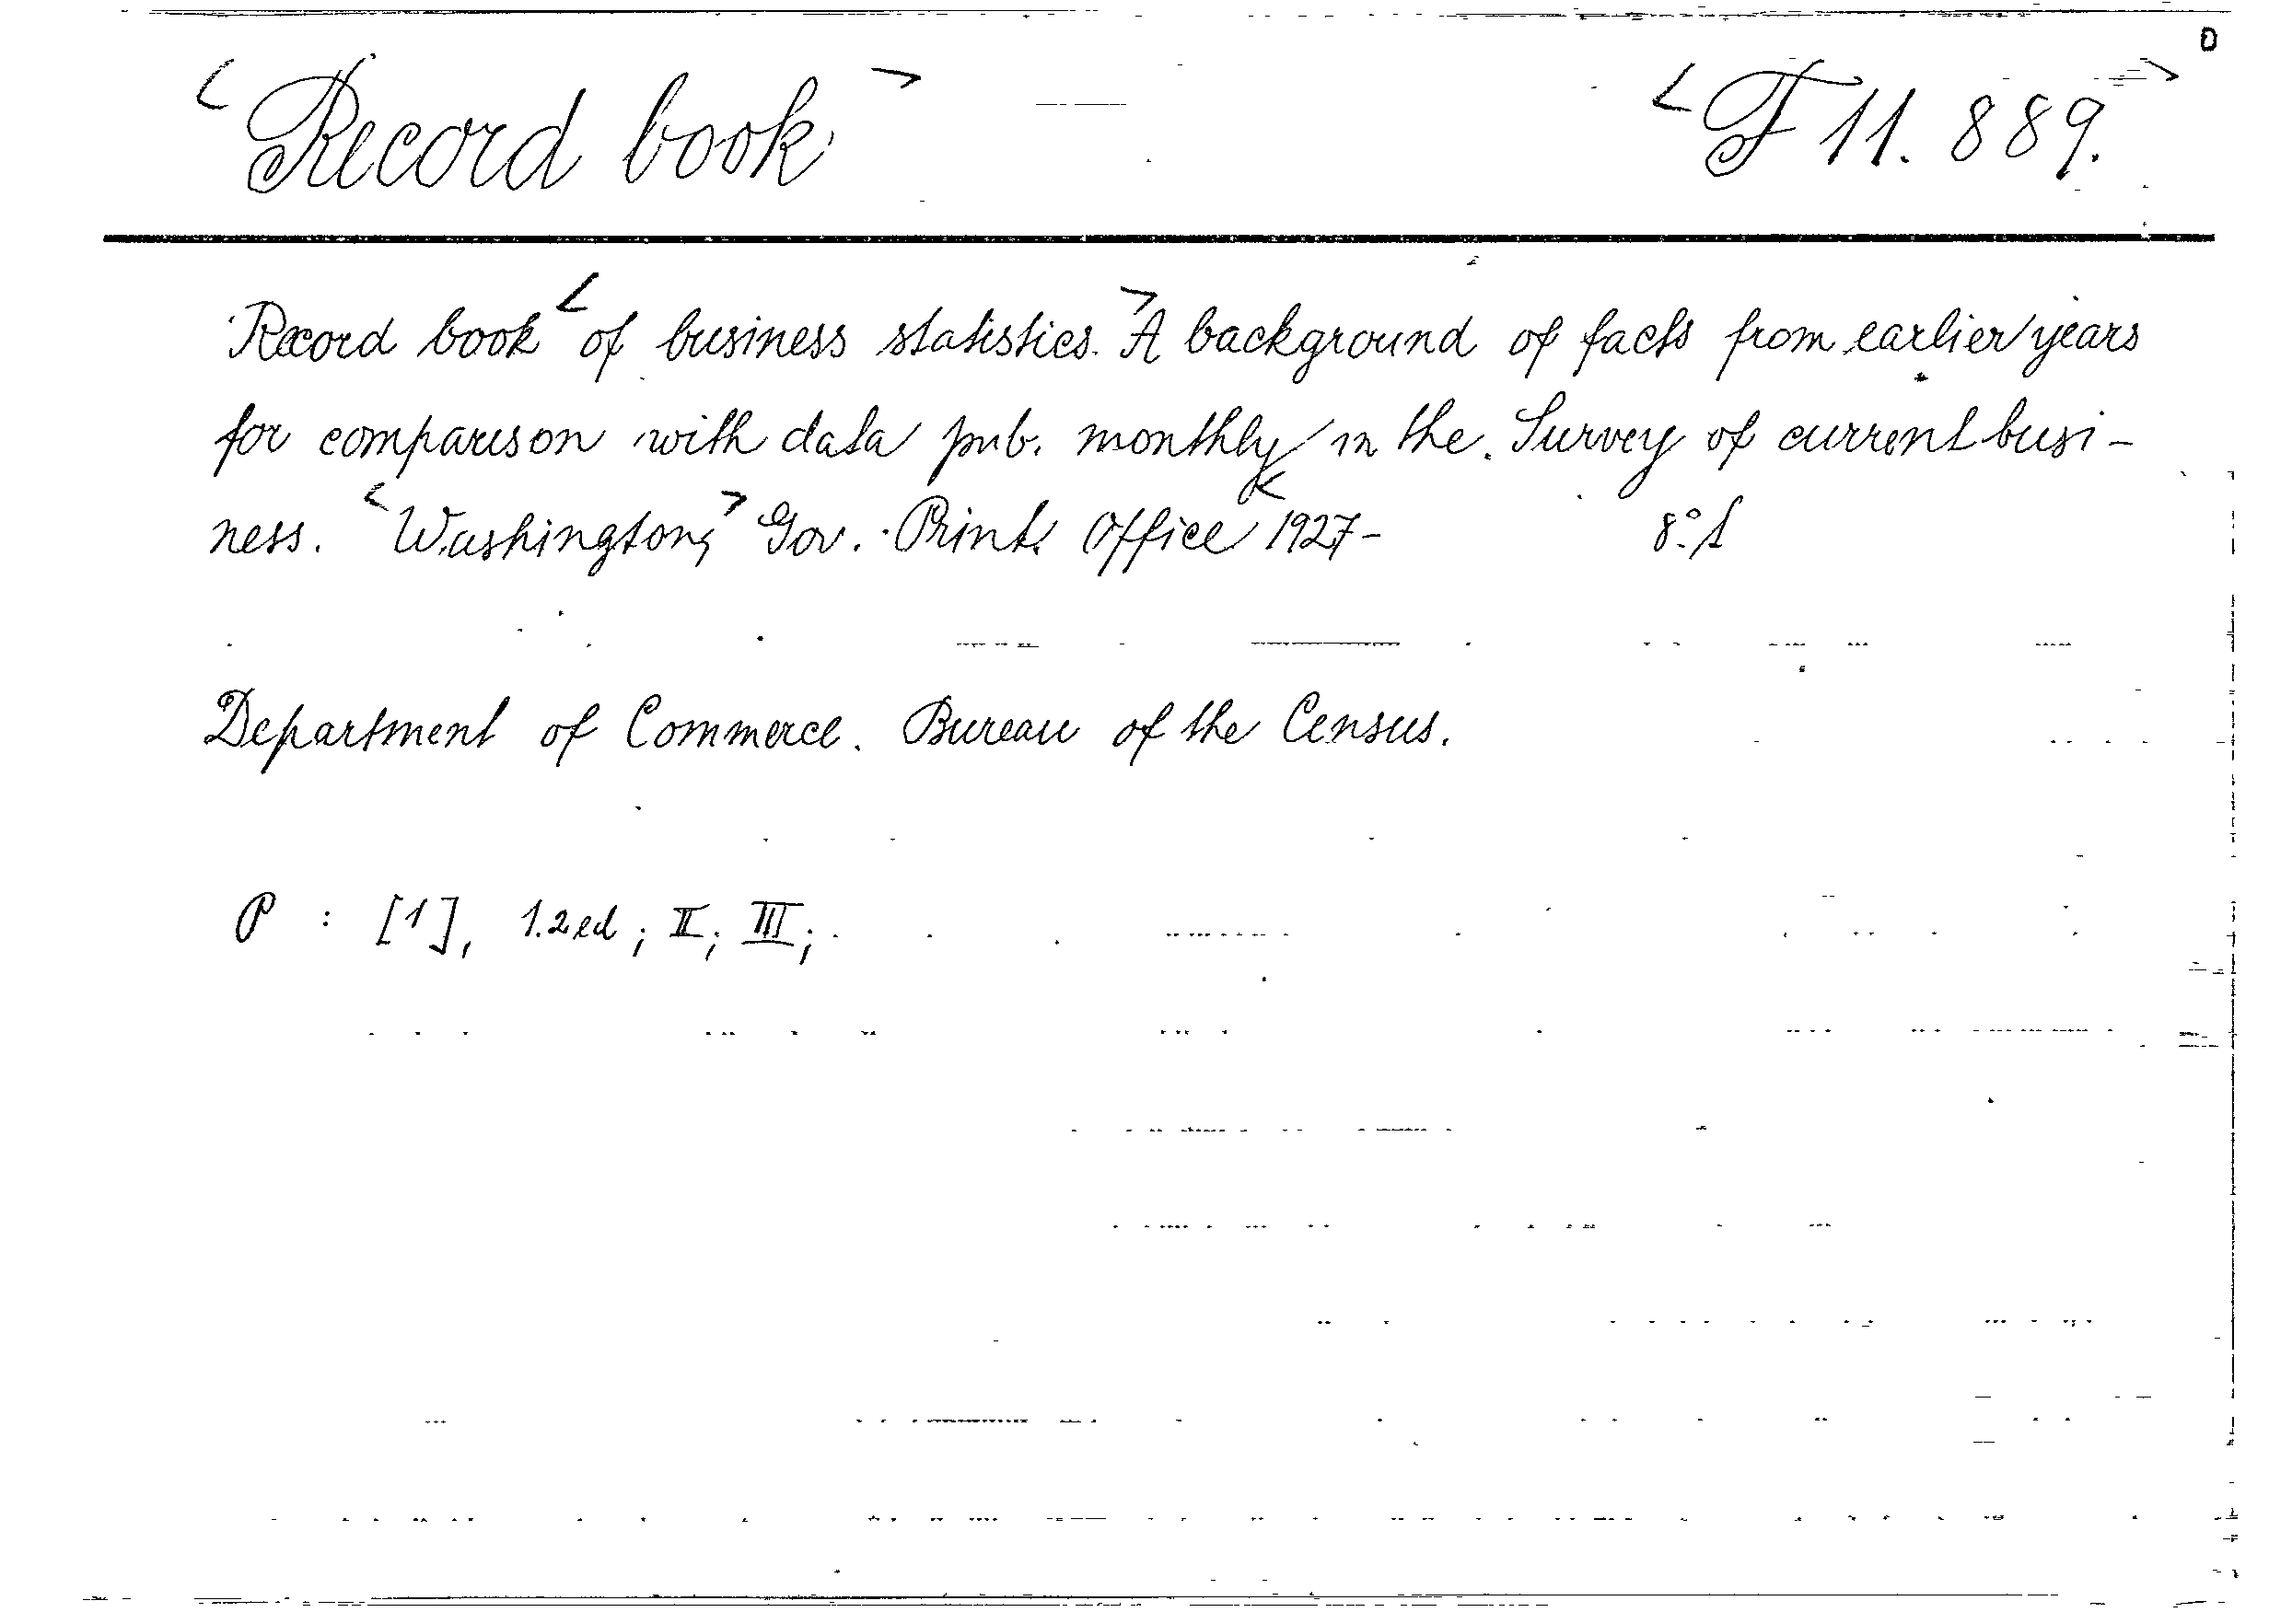 <Record book> <F 11. 889.>
Record book < of business statistics. > A background of facts from earlier years
for comparison with data pub. monthly in the Survey of current busi-
ness. <Washington,> Gov. Print. Office < 1927- 8°.
Department of Commerce. Bureau of the Census.
P : [1], 1.2 ed ; II ; III ;